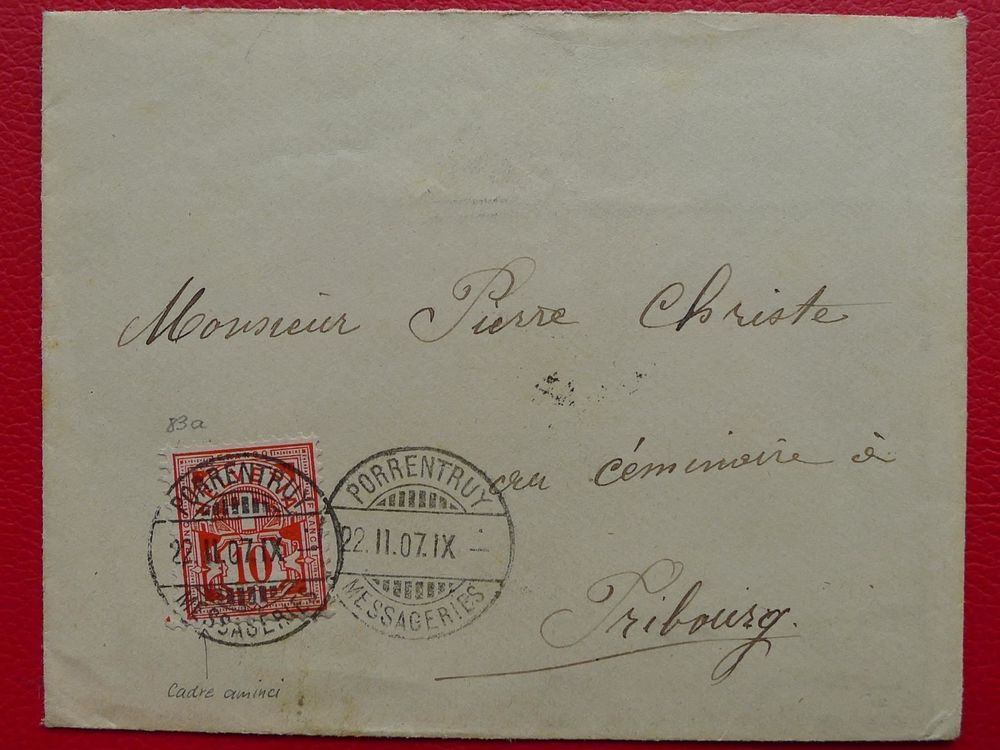 Monsieur Pierre Christe
au céminoire à
Fribourg.
83a
PORRENTRUY
22.II.07.IX
MESSAGERIES
10
PORRENTRUY
22.II.07.IX –
MESSAGERIES
Cadre aminci